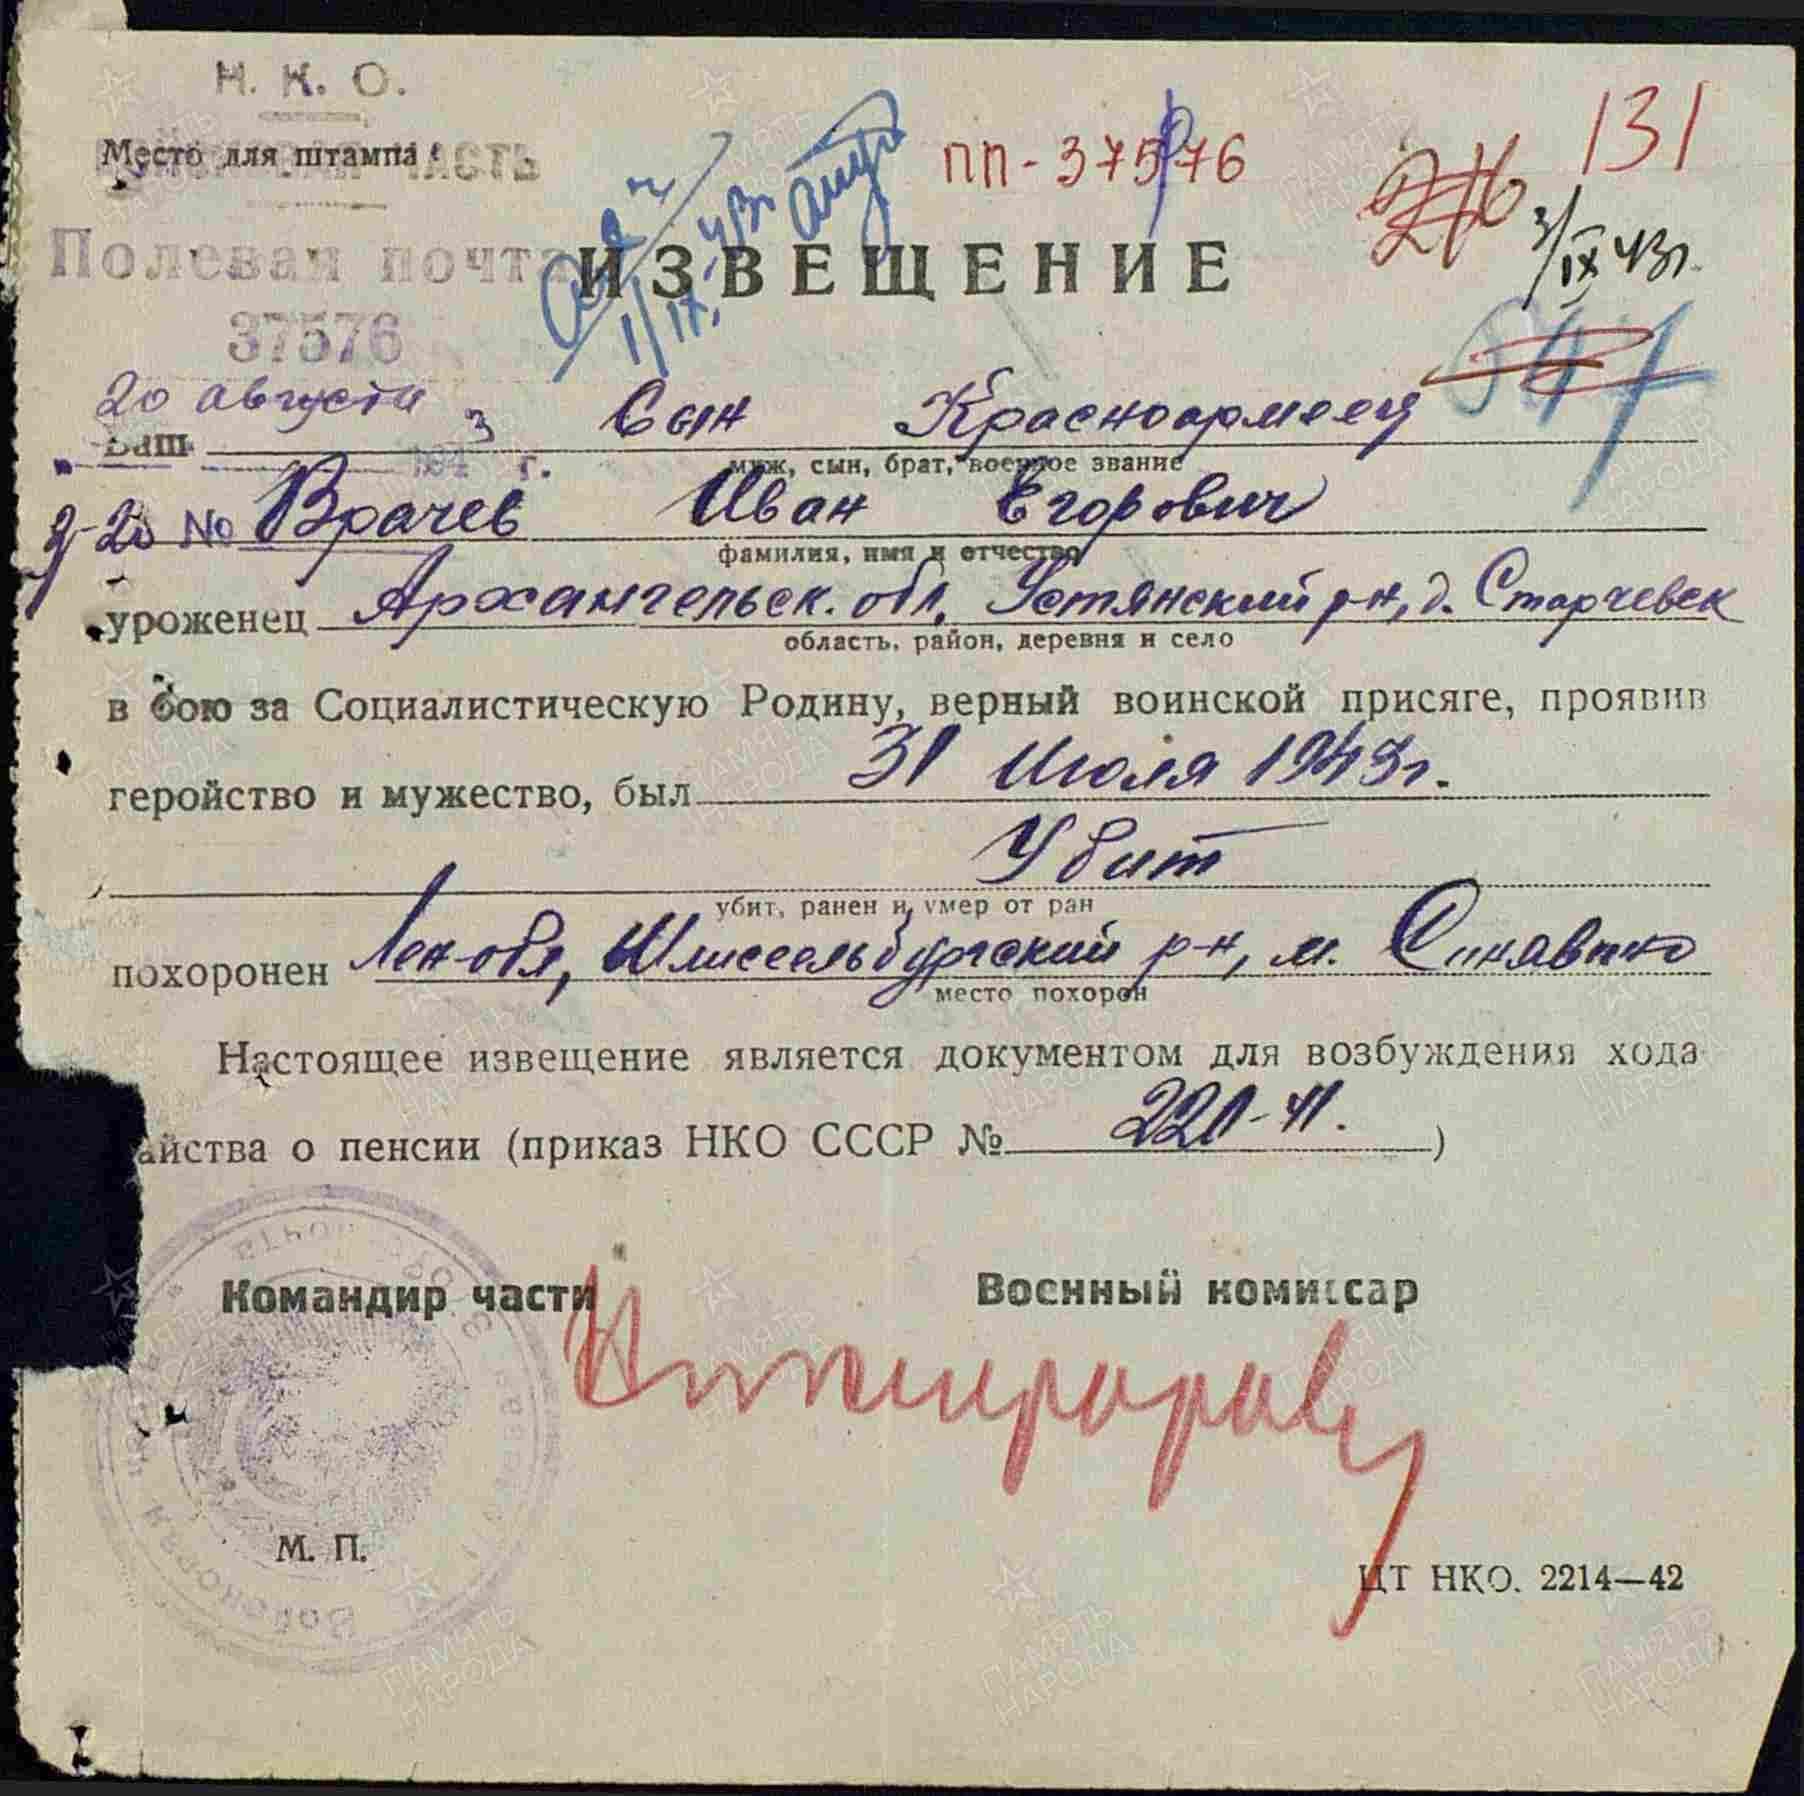 Н. К. О.
Место для штампа
ЧАСТЬ
ПП-37576
131
Полевая почта
37576
ИЗВЕЩЕНИЕ
1/IX 43г
3/IX 43г.
20 августа 1943 г.
Ваш Сын Красноармеец
муж, сын, брат, военное звание
№ Врачев Иван Егорович
фамилия, имя и отчество
уроженец Архангельск. обл, Устянский р-н, д. Старчевск
область, район, деревня и село
в бою за Социалистическую Родину, верный воинской присяге, проявив
геройство и мужество, был 31 Июля 1943г.
Убит
убит, ранен и умер от ран
похоронен Лен-обл, Шлиссельбургский р-н, м. Синявино
место похорон
Настоящее извещение является документом для возбуждения хода
айства о пенсии (приказ НКО СССР № 220-41.)
Командир части
Военный комиссар
М. П.
ЦТ НКО. 2214—42
ПАМЯТЬ НАРОДА